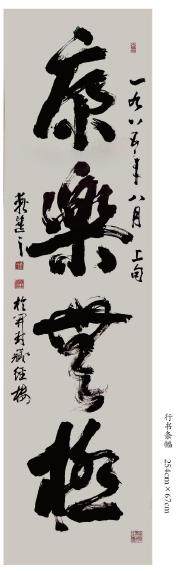 康樂無極
一九八五年八月上旬
於開封藏經樓
行书条幅 254cm×67cm